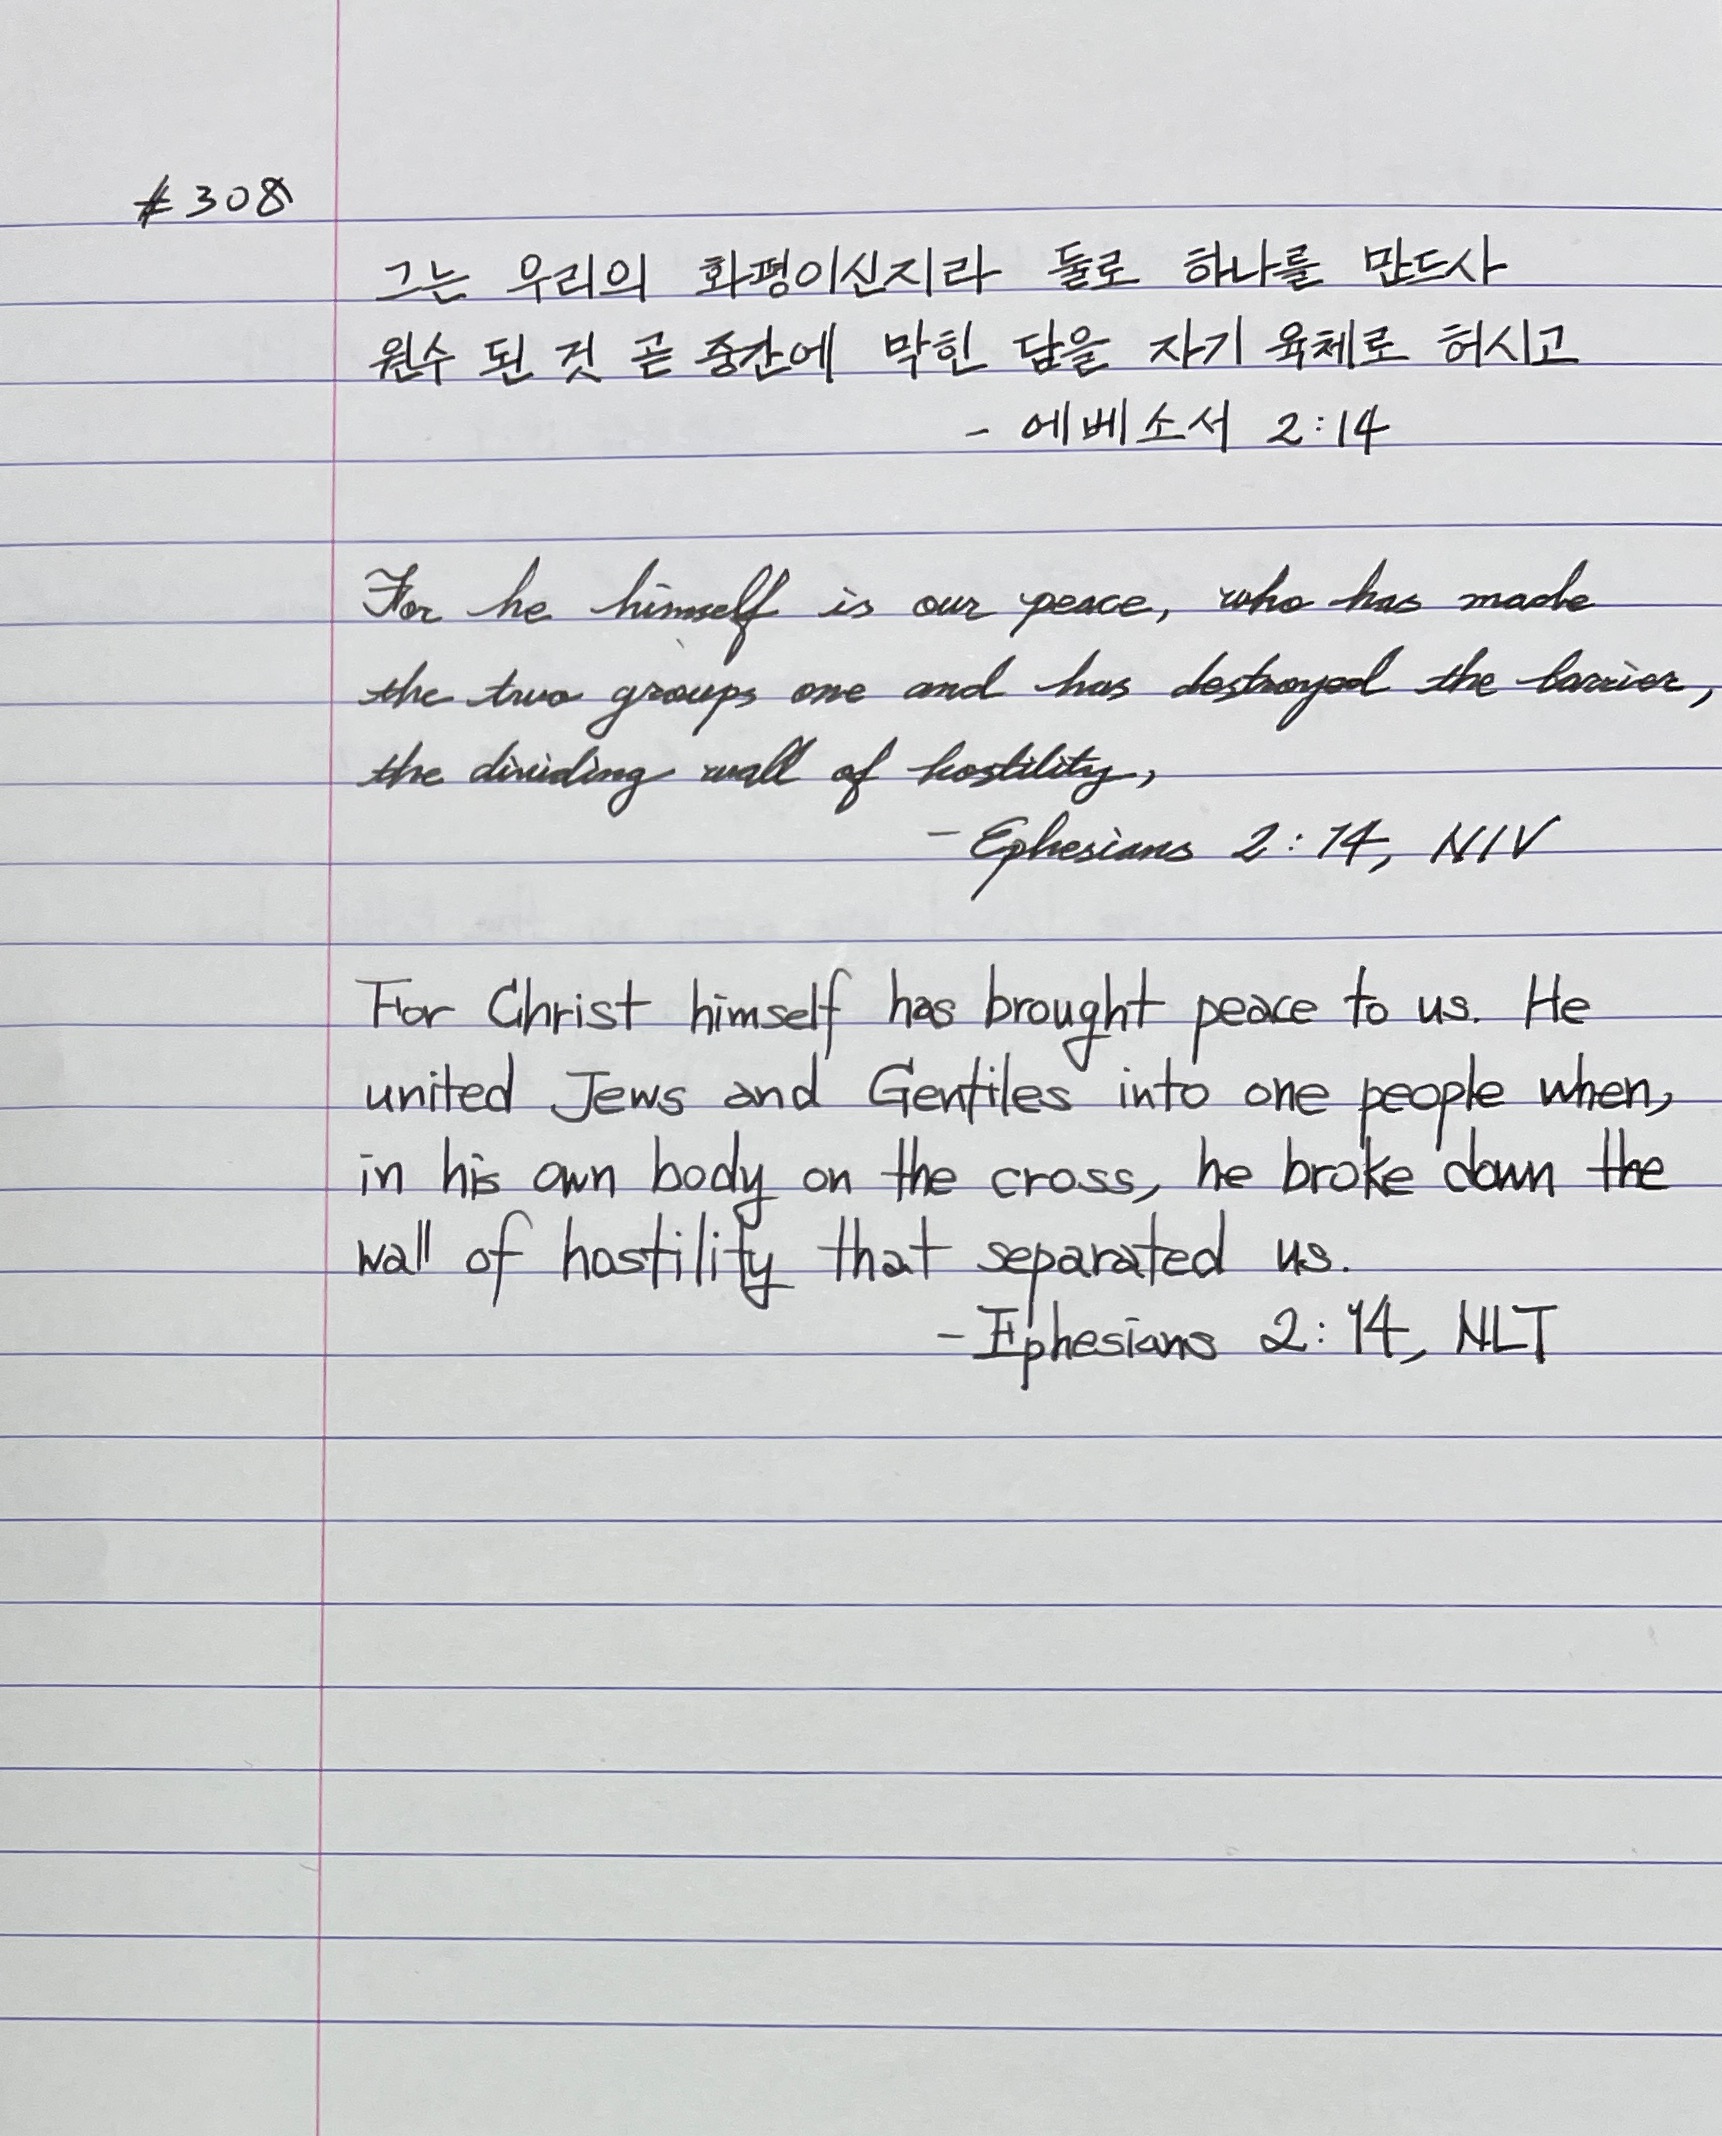 #308
그는 우리의 화평이신지라 둘로 하나를 만드사
원수 된 것 곧 중간에 막힌 담을 자기 육체로 허시고
- 에베소서 2:14
For he himself is our peace, who has made
the two groups one and has destroyed the barrier,
the dividing wall of hostility,
- Ephesians 2:14, NIV
For Christ himself has brought peace to us. He
united Jews and Gentiles into one people when,
in his own body on the cross, he broke down the
wall of hostility that separated us.
- Ephesians 2:14, NLT